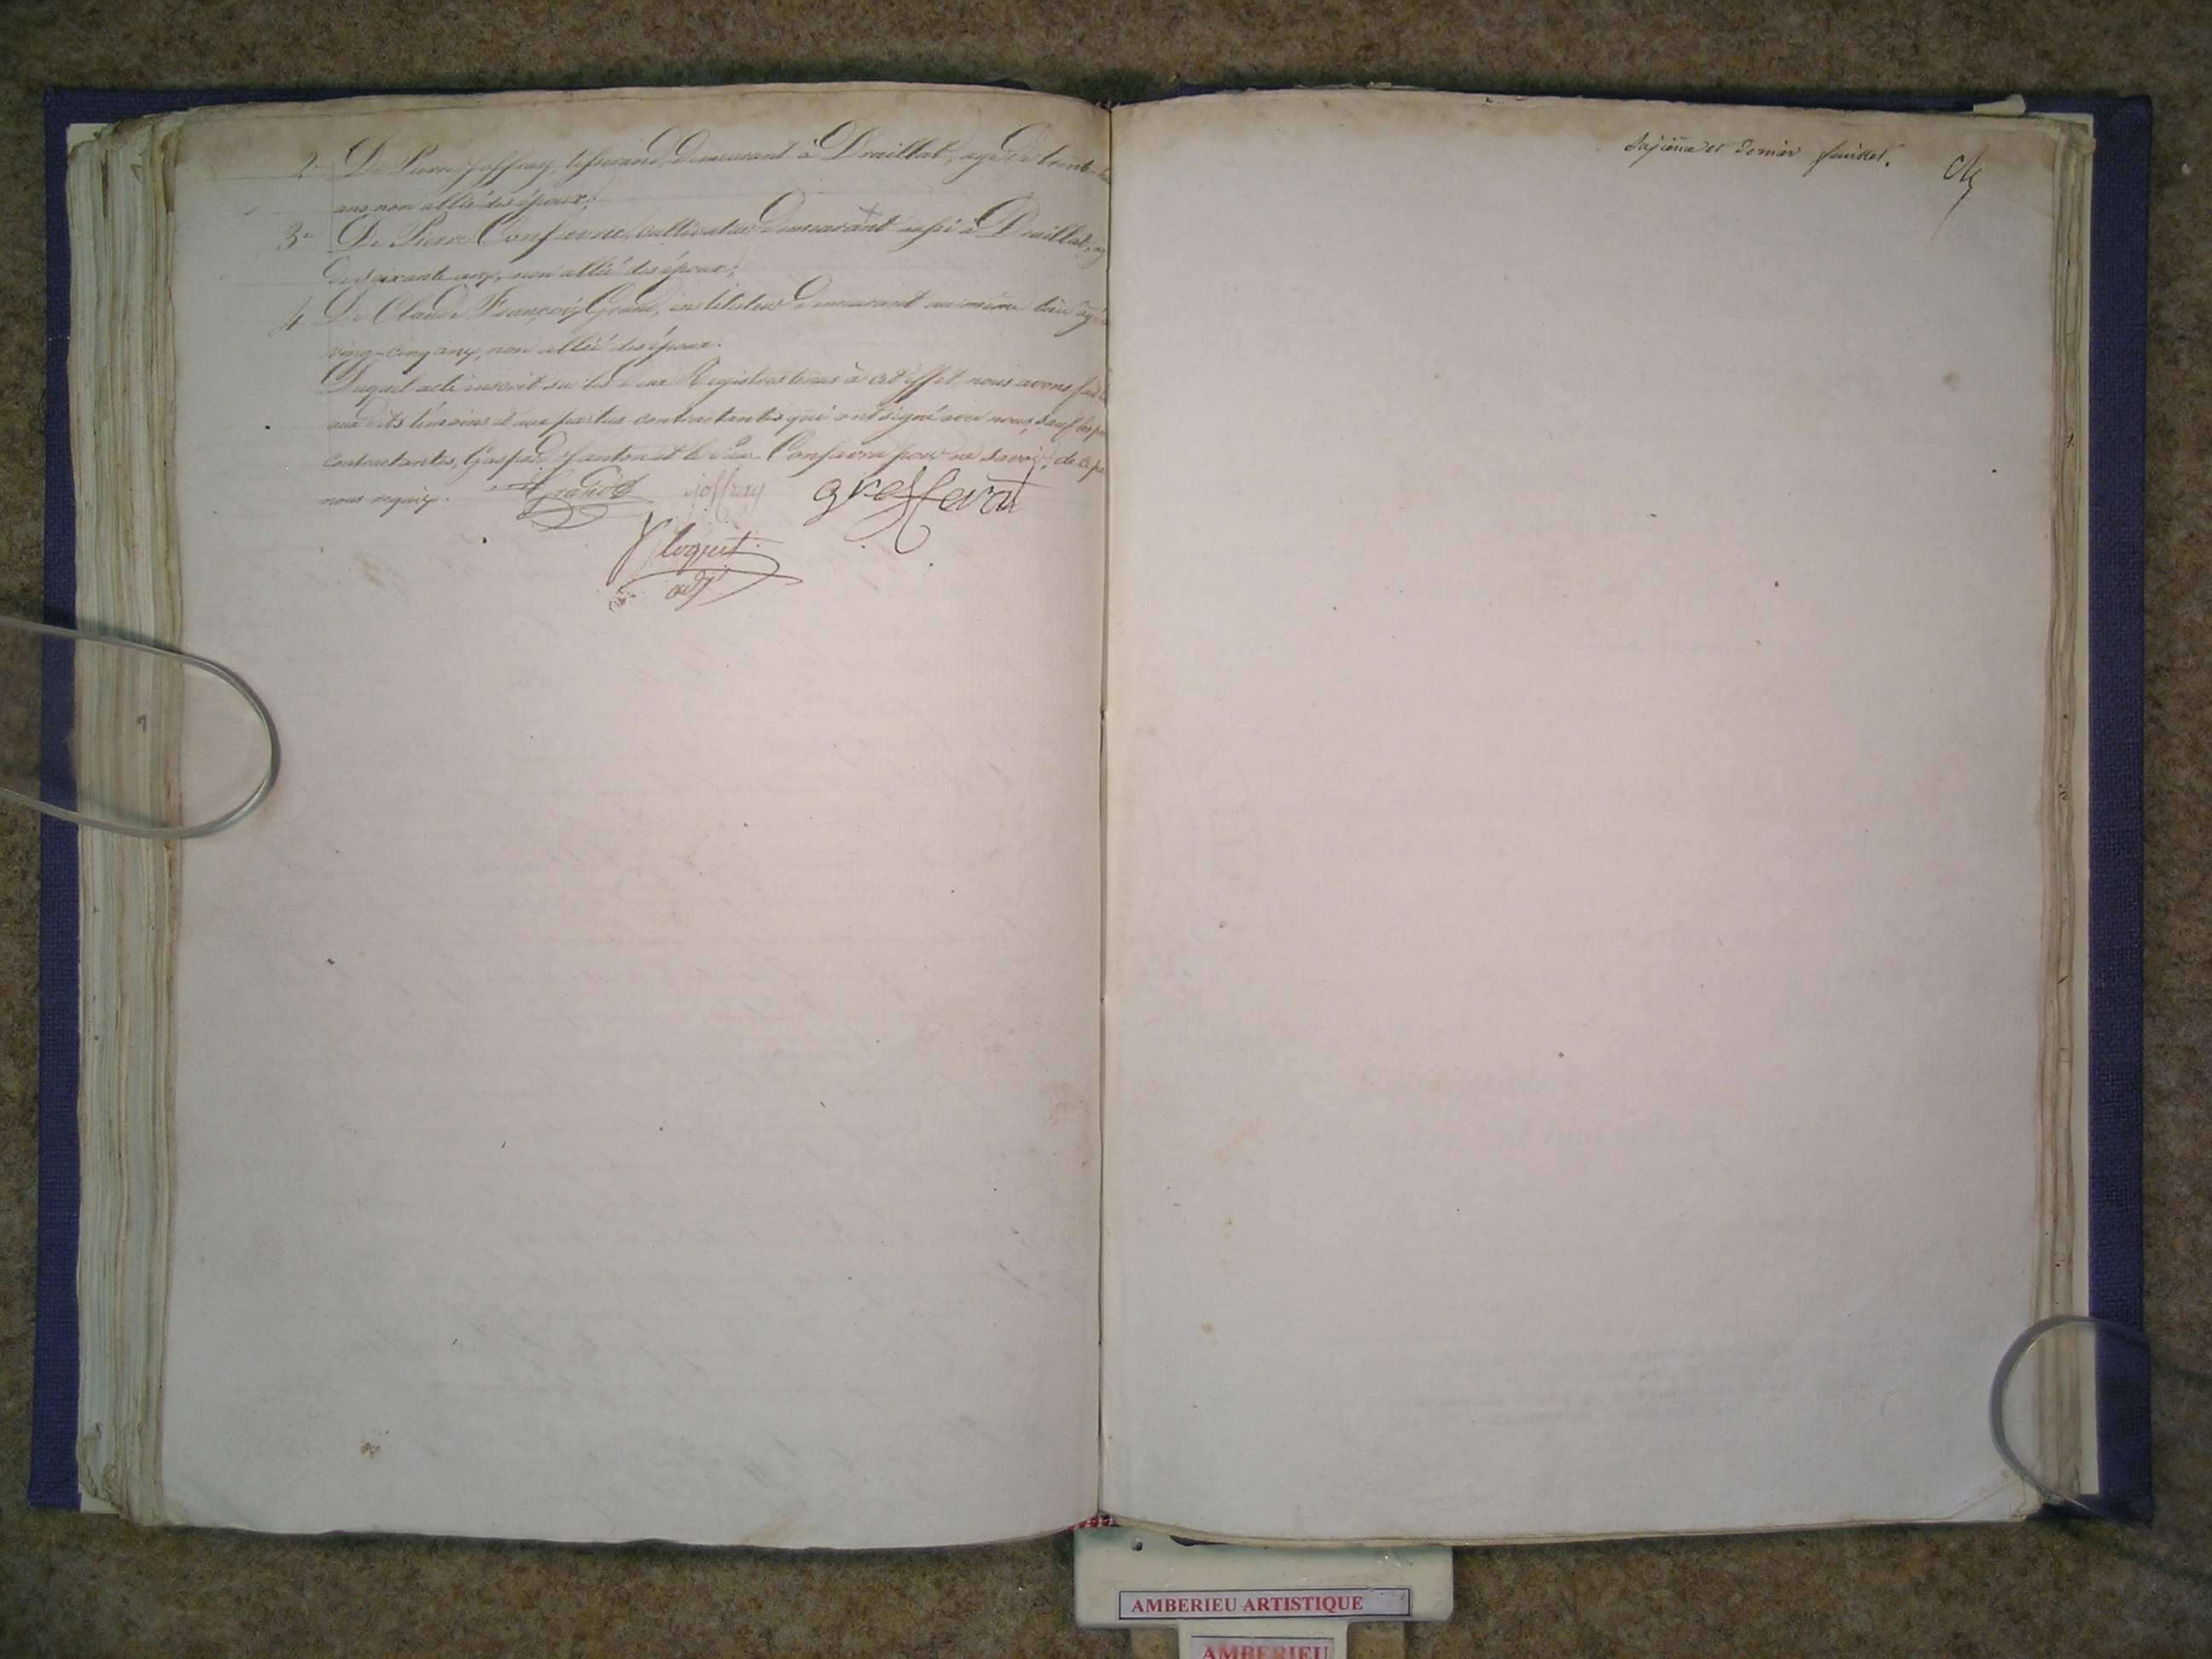 2° De Pierre Joffray, tisserand, demeurant à Druillat, agé de trente-
ans non allié des époux;
3° De Pierre Confavre, cultivateur demeurant aussi à Druillat, ag
de soixante ans, non allié des époux;
4 De Claude François Grand, instituteur demeurant au même lieu agé
vingt-cinq ans, non allié des époux.
Duquel acte inscrit sur les deux Registres tenus à cet effet nous avons fait
aux dits témoins et aux parties contractantes qui ont signé avec nous, sauf les
contractantes, Gaspard et le sieur Confavre pour ne savoir, de ce
nous requis. Grand joffray
adjt
et dernier feuillet.
AMBERIEU ARTISTIQUE
AMBERIEU